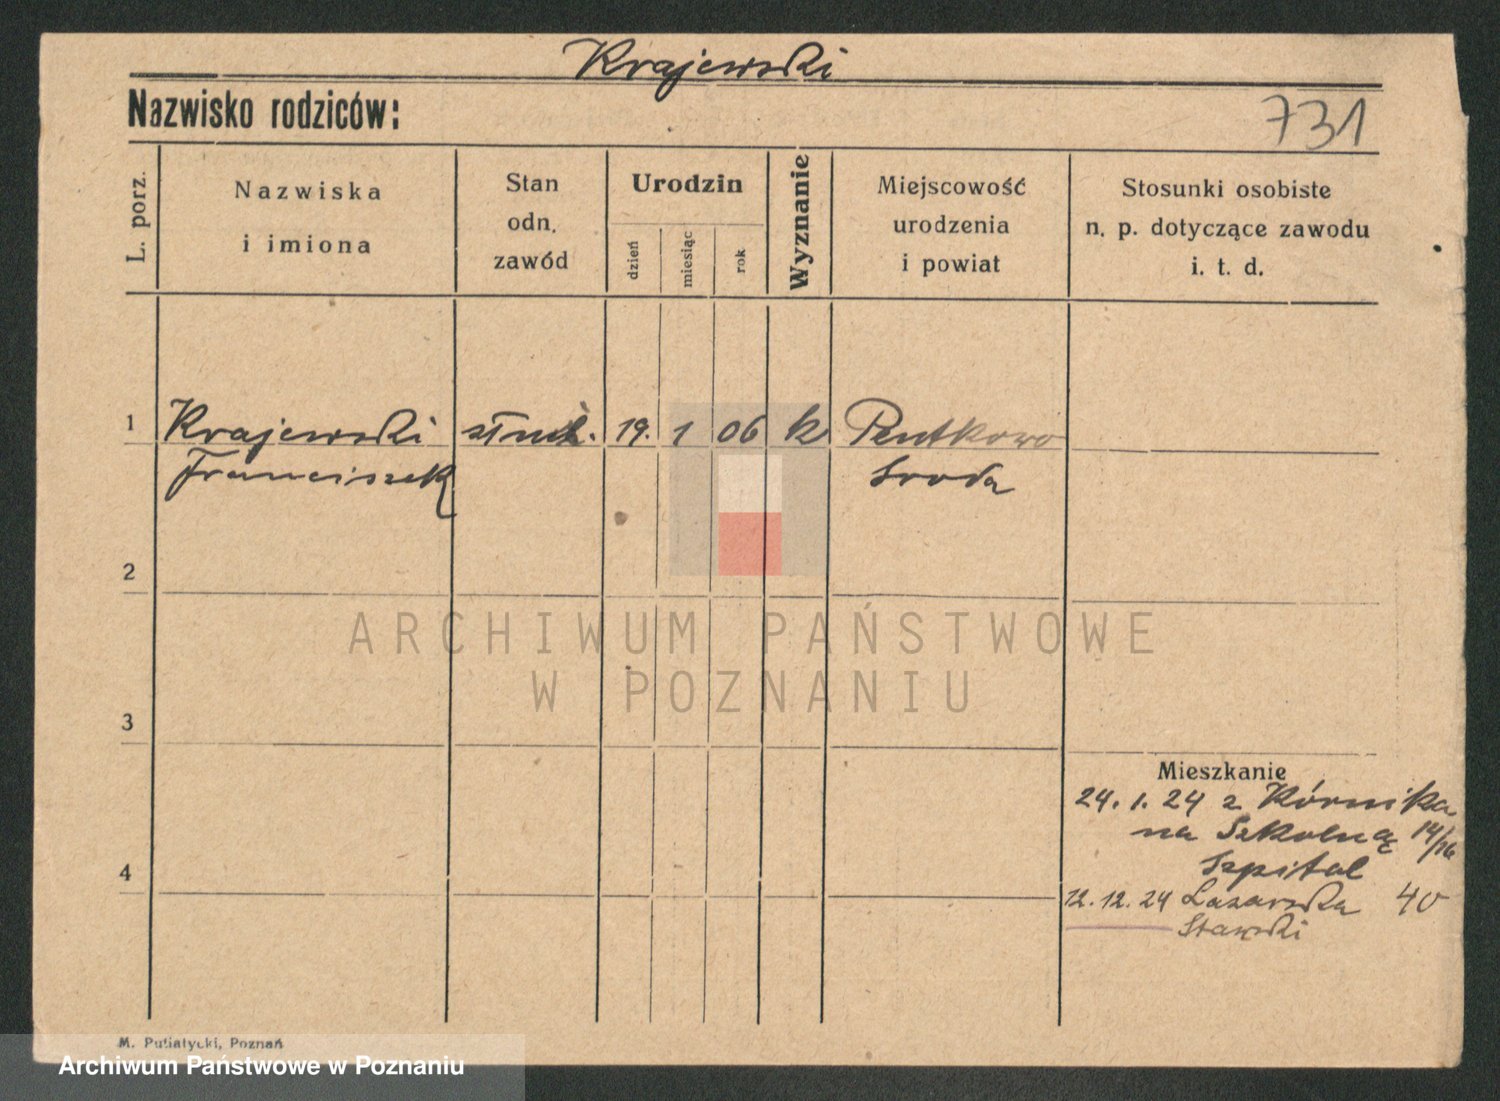 Krajewski
Nazwisko rodziców:
731
L. porz.
Nazwiska
i imiona
Stan
odn.
zawód
Urodzin
dzień
miesiąc
rok
Wyznanie
Miejscowość
urodzenia
i powiat
Stosunki osobiste
n. p. dotyczące zawodu
i. t. d.
1 Krajewski służ. 19. 1 06 k Pentkowo
Franciszek Sroda
2
ARCHIWUM PAŃSTWOWE
W POZNANIU
3
Mieszkanie
24. 1. 24 z Kórnika
na Szkolną 14/16
Szpital
4
12. 12. 24 Lazarska 40
Stawski
M. Putiatycki, Poznań
Archiwum Państwowe w Poznaniu